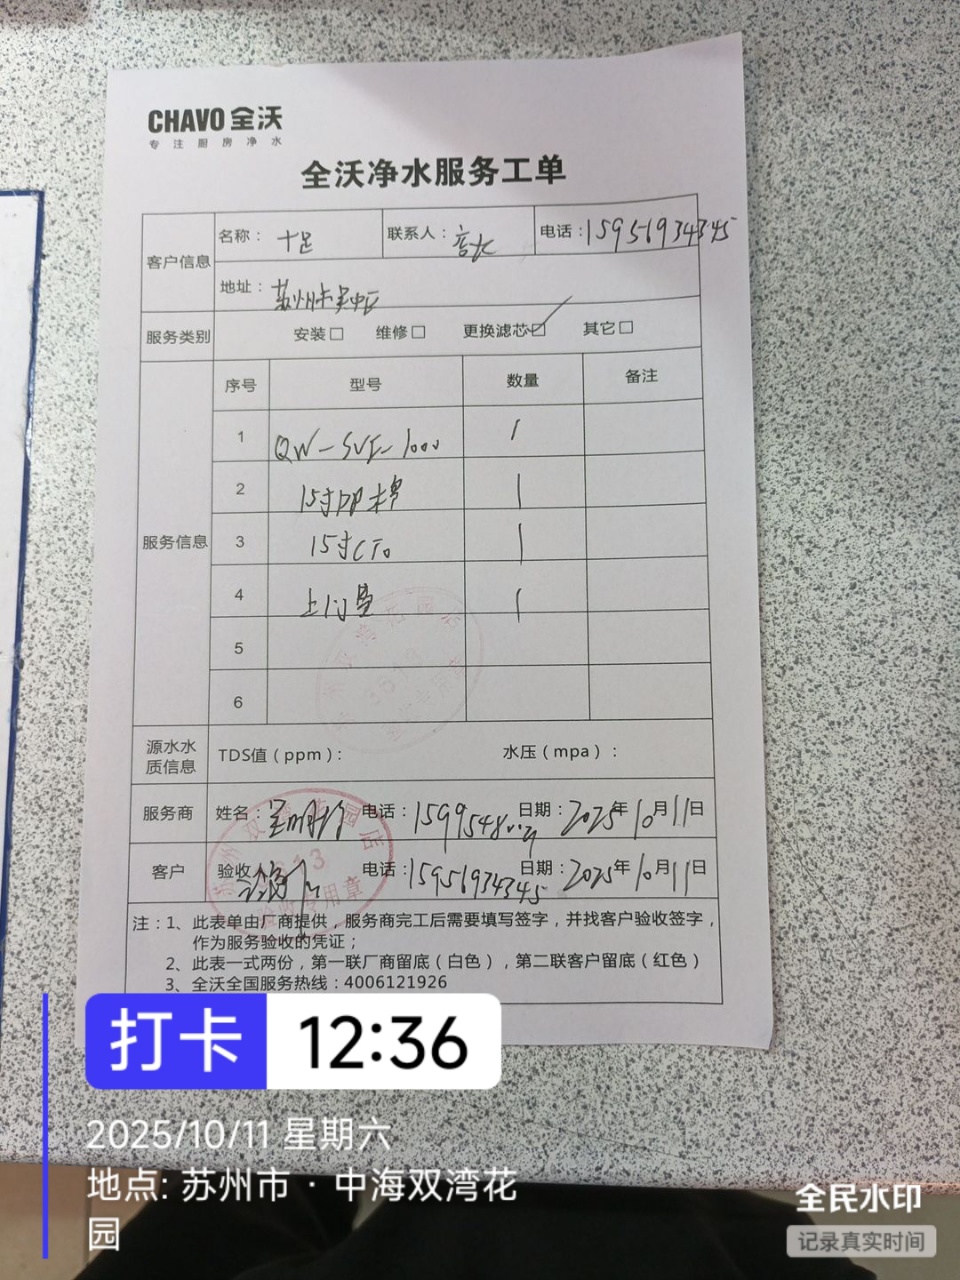 CHAVO 全沃
专注厨房净水
全沃净水服务工单
客户信息 名称：十足 联系人：店长 电话：15951934345
地址：苏州市吴中区
服务类别 安装□ 维修□ 更换滤芯☑ 其它□
服务信息 序号 型号 数量 备注
1 QW-SVF-1000 1
2 15寸PP棉 1
3 15寸CTO 1
4 上门费 1
5
6
源水水质信息 TDS值（ppm）： 水压（mpa）：
服务商 姓名： 电话： 日期：2025年10月11日
客户 验收 电话：15951934345 日期：2025年10月11日
注：1、此表单由厂商提供，服务商完工后需要填写签字，并找客户验收签字，
作为服务验收的凭证；
2、此表一式两份，第一联厂商留底（白色），第二联客户留底（红色）
3、全沃全国服务热线：4006121926
打卡 12:36
2025/10/11 星期六
地点: 苏州市 · 中海双湾花
园
全民水印
记录真实时间